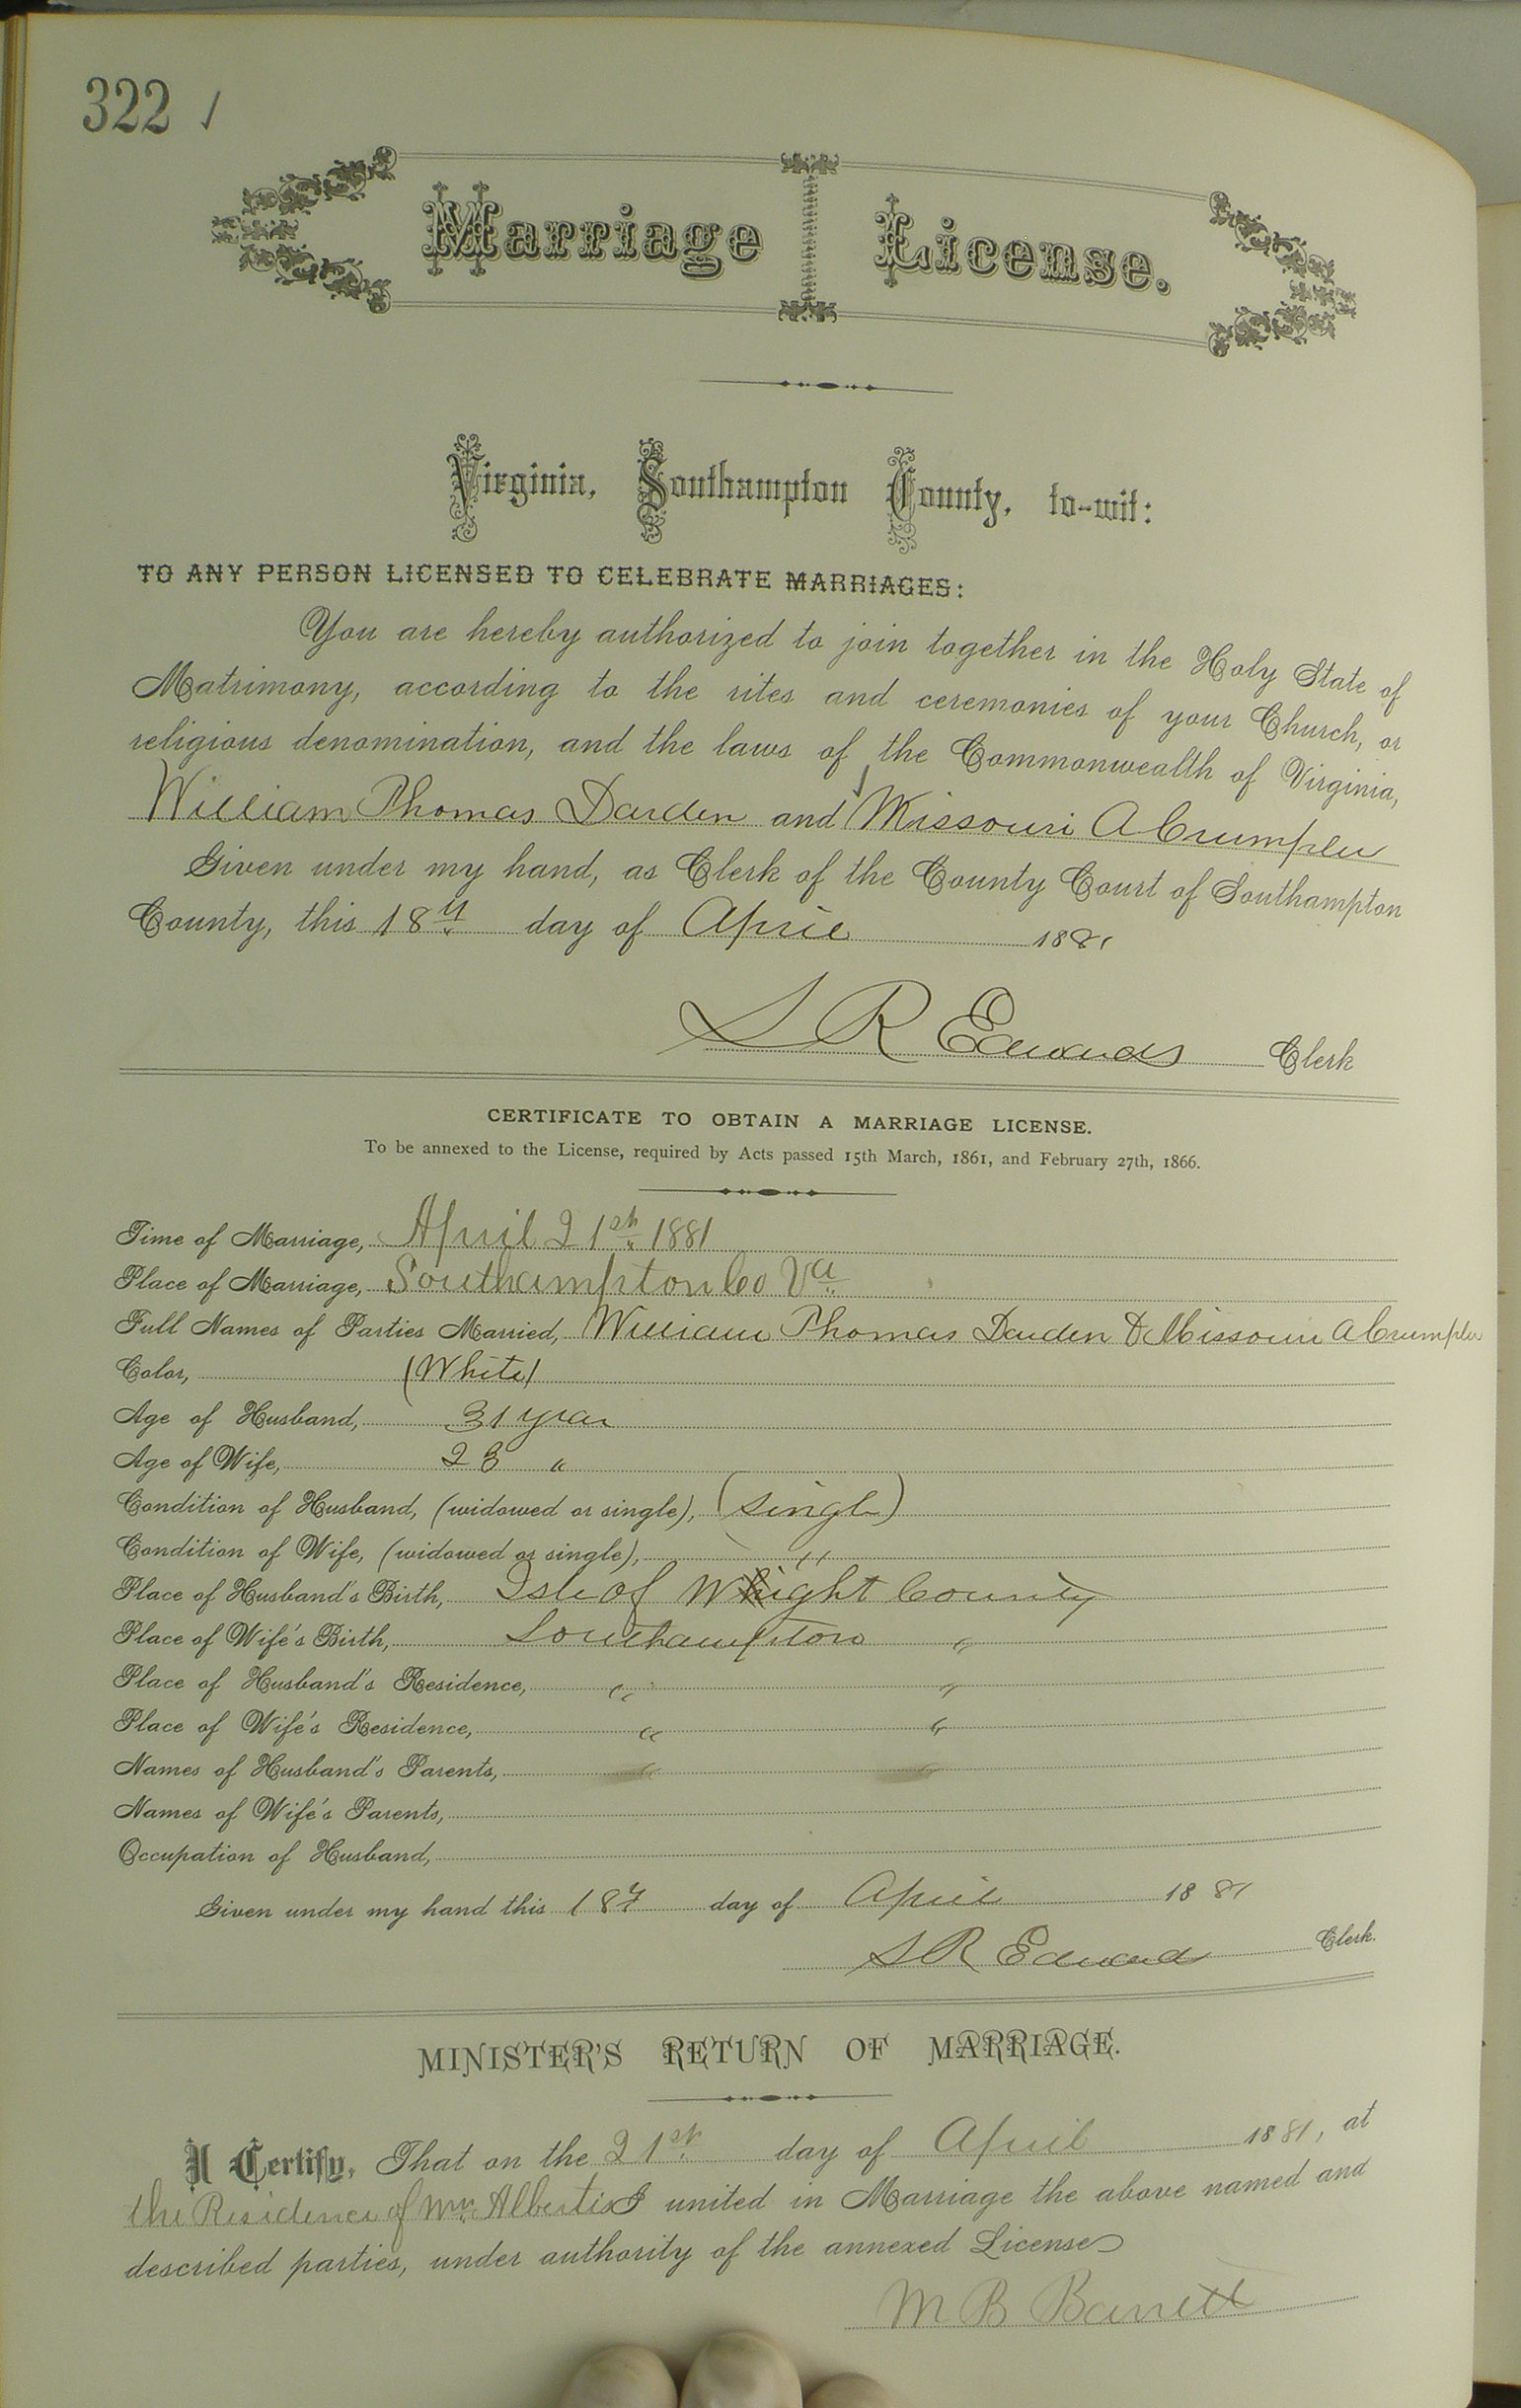 322 ✓
Marriage License.
Virginia, Southampton County, to-wit:
TO ANY PERSON LICENSED TO CELEBRATE MARRIAGES:
You are hereby authorized to join together in the Holy State of
Matrimony, according to the rites and ceremonies of your Church, or
religious denomination, and the laws of the Commonwealth of Virginia,
William Thomas Darden and Missouri A Crumpler
Given under my hand, as Clerk of the County Court of Southampton
County, this 18th day of April 1881
L R Edwards Clerk
CERTIFICATE TO OBTAIN A MARRIAGE LICENSE.
To be annexed to the License, required by Acts passed 15th March, 1861, and February 27th, 1866.
Time of Marriage, April 21st 1881
Place of Marriage, Southampton Co Va
Full Names of Parties Married, William Thomas Darden & Missouri A Crumpler
Color, (White)
Age of Husband, 31 year
Age of Wife, 23 "
Condition of Husband, (widowed or single), (single)
Condition of Wife, (widowed or single), "
Place of Husband's Birth, Isle of Wight County
Place of Wife's Birth, Southampton "
Place of Husband's Residence, " "
Place of Wife's Residence, " "
Names of Husband's Parents, " "
Names of Wife's Parents,
Occupation of Husband,
Given under my hand this 18th day of April 1881
L R Edwards Clerk.
MINISTER'S RETURN OF MARRIAGE.
I Certify, That on the 21st day of April 1881, at
the Residence of Mr. Albertis I united in Marriage the above named and
described parties, under authority of the annexed License
M B Barrett